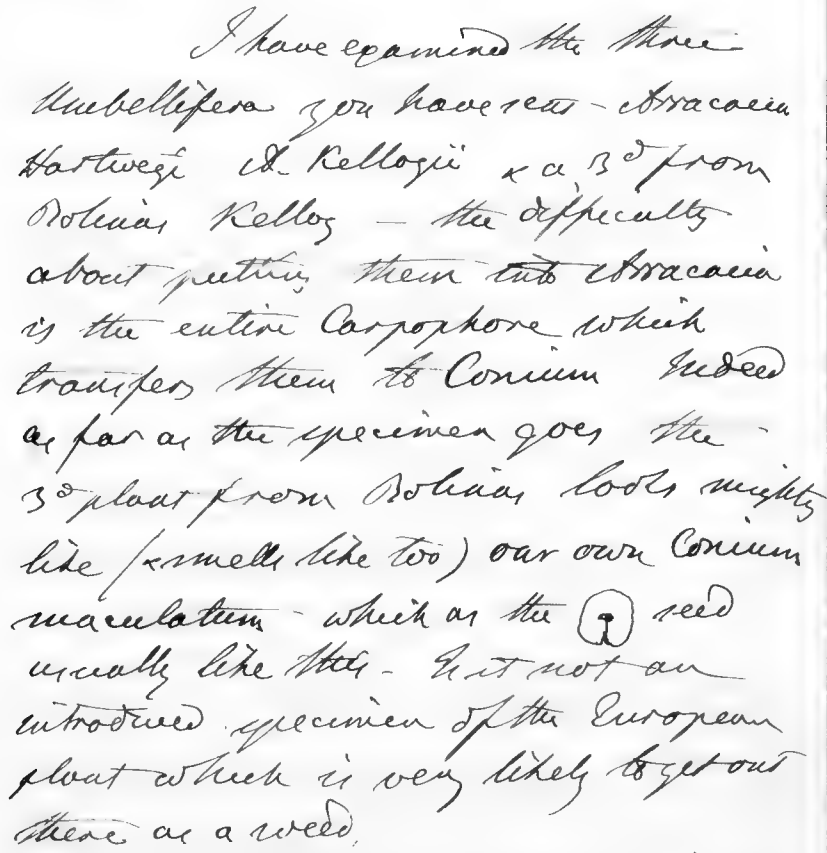 I have examined the three
Umbellifera you have sent - Arracacia
Hartwegi A. Kellogii & a 3d from
Bolinas Kellog - the difficulty
about putting them into Arracacia
is the entire Carpophore which
transfers them to Conium Indeed
as far as the specimen goes the
3d plant from Bolinas looks mighty
like (& smells like too) our own Conium
maculatum - which as the seed
usually like this - Is it not an
introduced specimen of the European
plant which is very likely to get out
there as a weed.